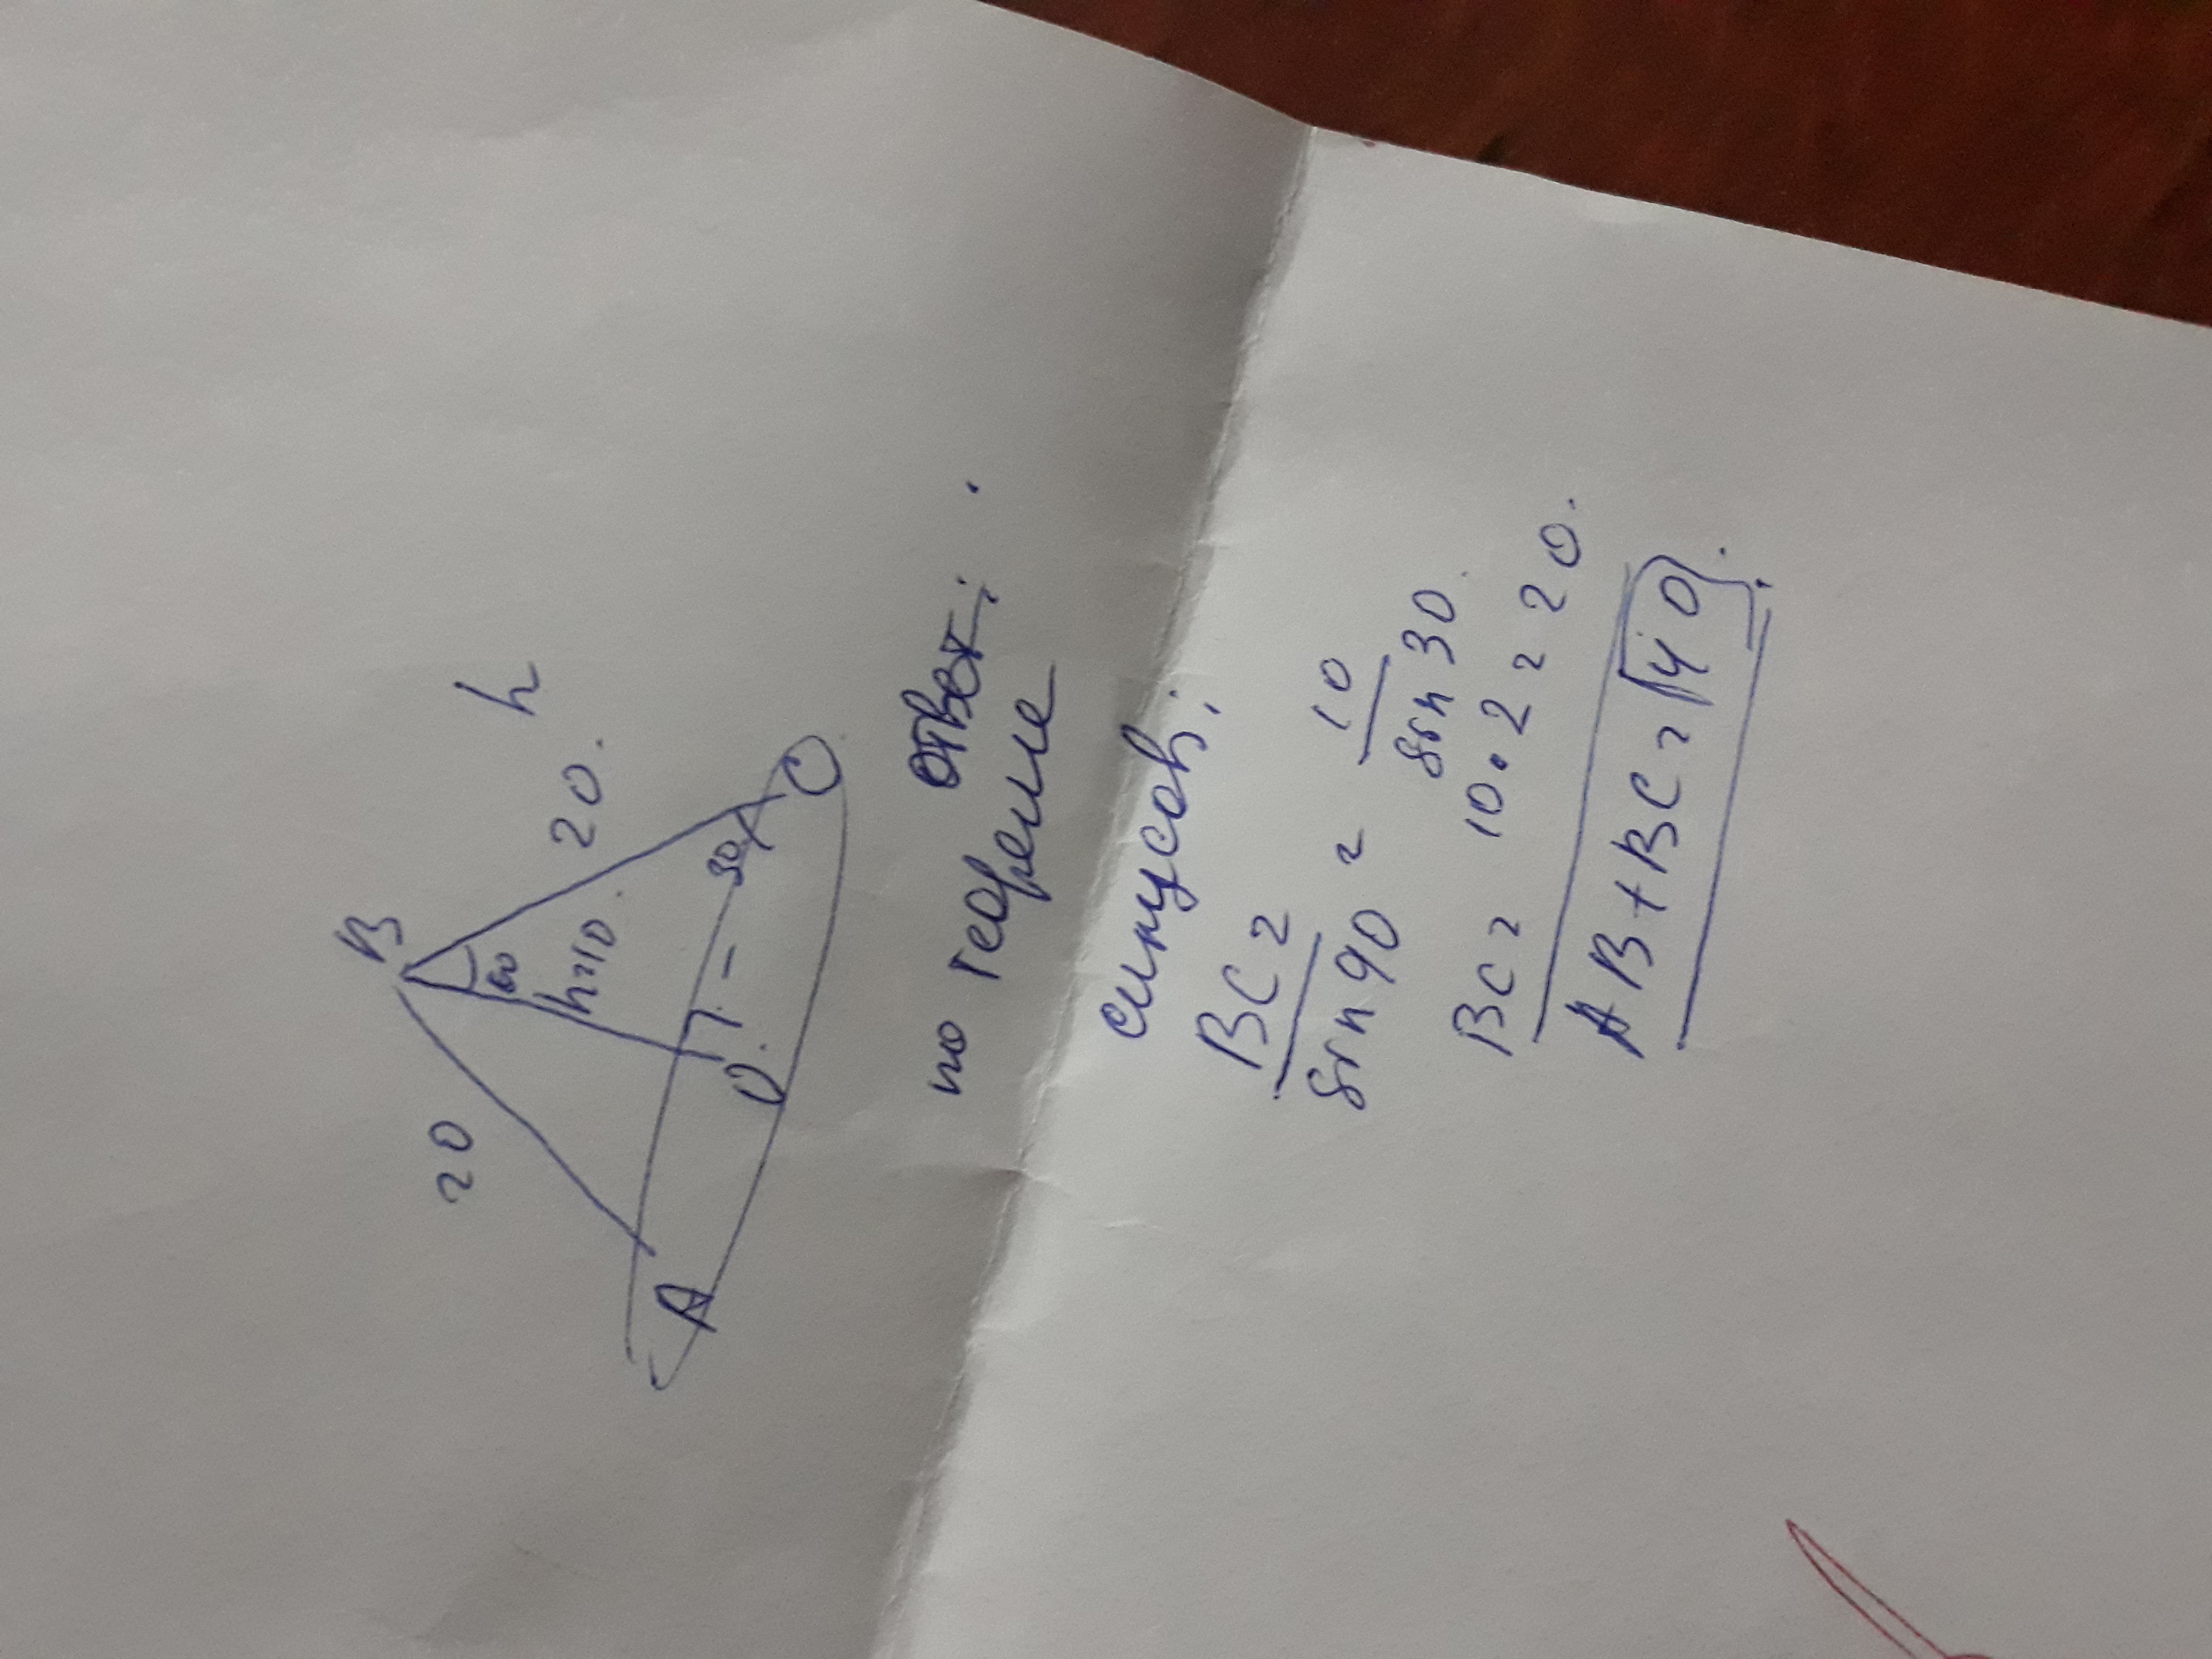 B
20
20.
h
60
h=10.
30
A
O.
C
ответ:
по теореме
синусов:
BC = 10
sin 90 = sin 30.
BC = 10 • 2 = 20.
AB + BC = 40.